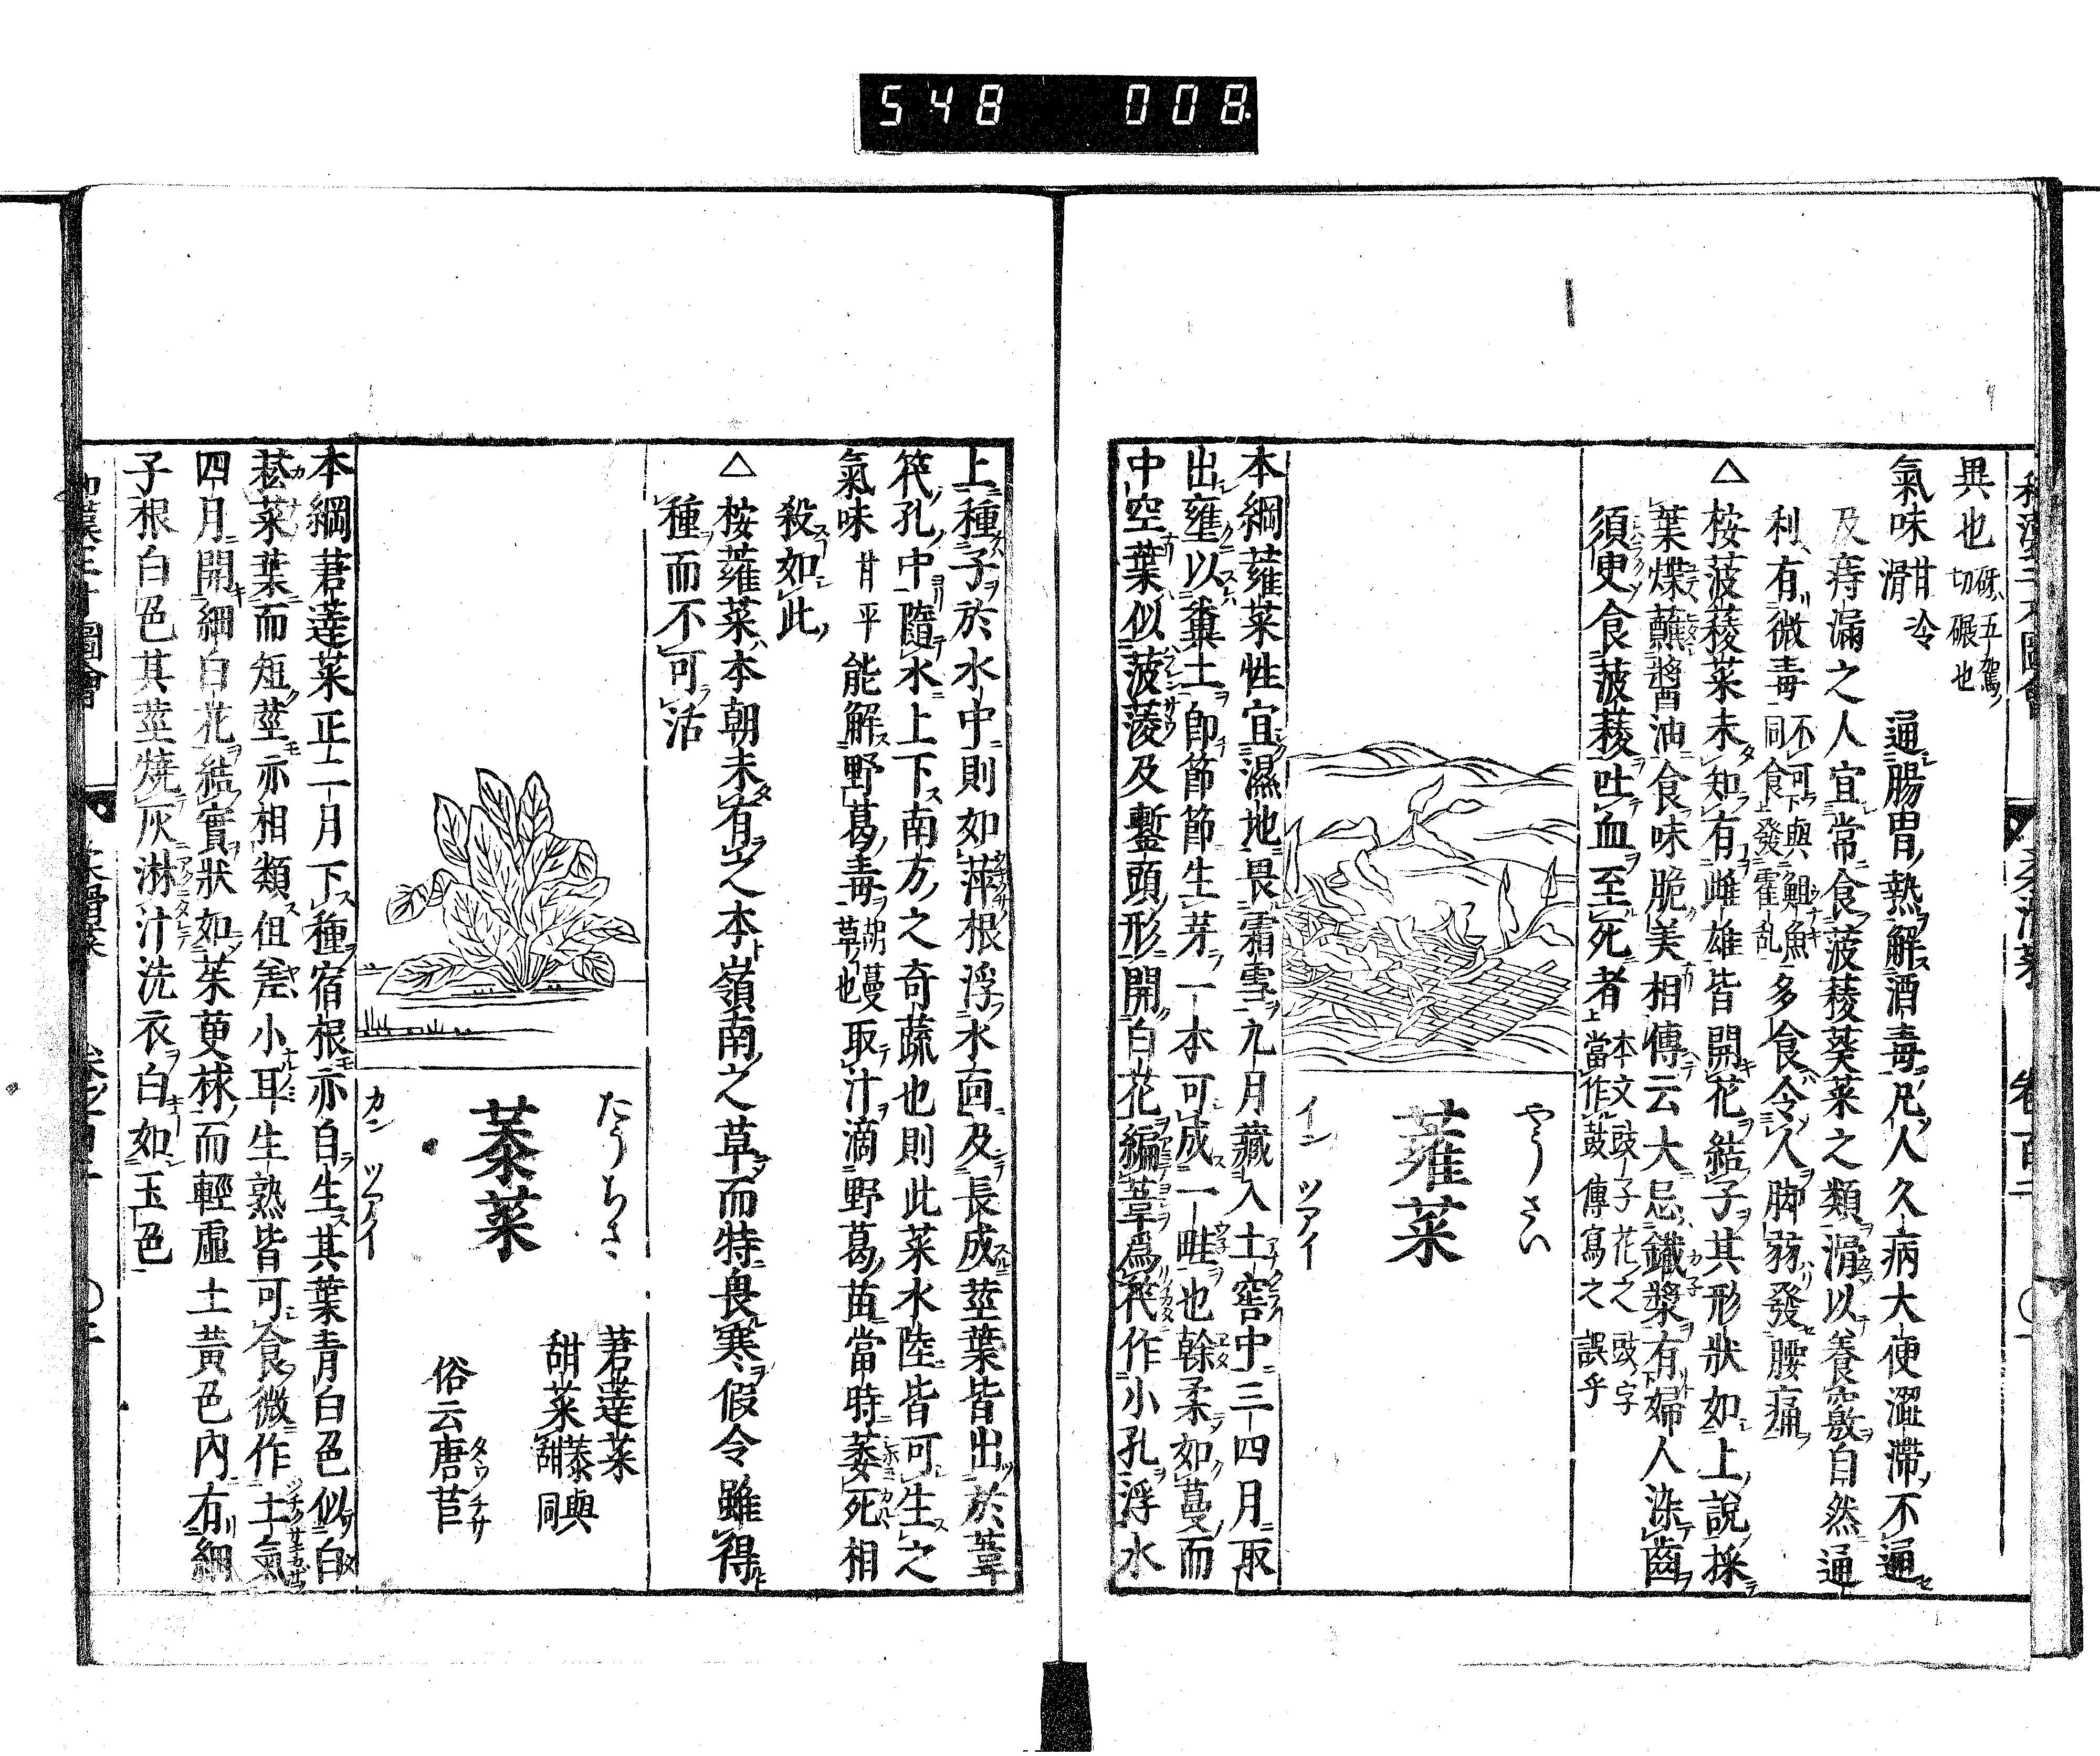 548 008
異也 砑五駕切碾也
氣味 甘冷滑 通腸胃熱解酒毒凡人久病大便澀滯不通
及痔漏之人宜常食菠薐葵菜之類滑以養竅自然通
利有微毒 不可與䱇魚同食發霍亂 多食令人脚弱發腰痛
△桉菠薐菜未知有雌雄皆開花結子其形狀如上說採
葉煠蘸醬油食味脆美相傳云大忌鐵漿有婦人染齒
須臾食菠薐吐血至死者 本文豉子花之豉字上當作鼓傳寫之誤乎
やうさい
蕹菜
イン ツアイ
本綱蕹菜性宜濕地畏霜雪九月藏入土窖中三四月取
出壅以糞土即節節生芽一本可成一畦也幹柔如蔓而
中空葉似菠薐及鏨頭形開白花編葦爲筏作小孔浮水
上種子於水中則如萍根浮水面及長成莖葉皆出於葦
筏孔中隨水上下南方之奇蔬也則此菜水陸皆可生之
氣味 甘平 能解野葛毒 胡蔓草也 取汁滴野葛苗當時萎死相
殺如此
△桉蕹菜本朝未有之本嶺南之草而特畏寒假令雖得
種而不可活
たうちさ
菾菜
カン ツアイ
莙薘菜
甜菜 菾與甜同
俗云唐苣
タウチサ
本綱莙薘菜正二月下種宿根亦自生其葉青白色似白
菘菜葉而短莖亦相類但差小耳生熟皆可食微作土氣
四月開細白花結實狀如茱萸梂而輕虛土黃色內有細
子根白色其莖燒灰淋汁洗衣白如玉色